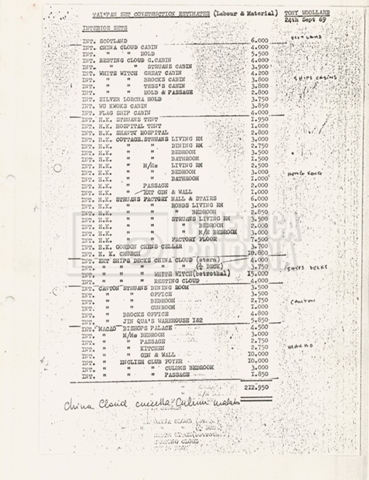 TAI-PAN SET CONSTRUCTION ESTIMATES (Labour & Material) TONY WOOLLARD
24th Sept 69
INTERIOR SETS
INT. SCOTLAND 6.000 SCOTLAND
INT. CHINA CLOUD CABIN 4.000
INT. " " HOLD 5.500
INT. RESTING CLOUD G.CABIN 4.000
INT. " " STRUANS CABIN
INT. WHITE WITCH GREAT CABIN 4.200 SHIPS CABINS
INT. " " BROCKS CABIN 3.800
INT. " " TESS'S CABIN 2.800
INT. " " HOLD & PASSAGE 2.800
INT. SILVER LORCHA HOLD 3.750
INT. WU KWOKS CABIN 3.850
INT. FLAG SHIP CABIN 4.000
INT. H.K. STRUANS TENT 1.950
INT. H.K. HOSPITAL TENT 1.000
INT. H.K. SHANTY HOSPITAL 2.800
INT. H.K. COTTAGE.STRUANS LIVING RM 3.500
INT. H.K. " " DINING RM 2.750
INT. H.K. " " BEDROOM 3.500
INT. H.K. " " BATHROOM 1.500
INT. H.K. " M/Ms LIVING RM 2.500
INT. H.K. " " BEDROOM
INT. H.K. " " BATHROOM HONG KONG
INT. H.K. " PASSAGE 2.000
INT. H.K. " EXT GDN & WALL 1.000
INT. H.K. STRUANS FACTORY HALL & STAIRS 6.000
INT. H.K. " " ROBBS LIVING RM
INT. H.K. " " " BEDROOM
INT. H.K. " " STRUANS LIVING RM 3.500
INT. H.K. " " " BEDROOM 2.000
INT. H.K. " " " M/M BEDROOM 3.000
INT. H.K. " " FACTORY FLOOR
INT. H.K. GORDON CHENS CELLAR 3.700
INT. H. K. CHURCH 10.000
INT. EXT SHIPS DECKS CHINA CLOUD (stern) 4.000
INT. " " " " (½ DECK) 3.750 SHIPS DECKS
INT. " " " WHITE WITCH(betrothal) 15.000
INT. " " " RESTING CLOUD 4.000
INT. CANTON STRUANS DINING ROOM 3.500
INT. " " OFFICE 3.500
INT. " " BEDROOM 2.750 CANTON
INT. " " GUNROOM 1.000
INT. " BROCKS OFFICE 4.800
INT. " JIN QUA'S WAREHOUSE 1&2 5.850
INT. MACAO BISHOPS PALACE 4.500
INT. " M/Ms BEDROOM 3.000
INT. " " PASSAGE 2.750 MACAO
INT. " " KITCHEN 2.750
INT. " " GDN & WALL 10.000
INT. " ENGLISH CLUB FOYER 10.000
INT. " " " CULUMS BEDROOM 3.000
INT. " " " PASSAGE 1.850
212.950
China Cloud